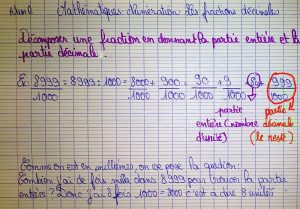 Num6 Mathématiques: Numération: Les fractions décimales
Décomposer une fraction en donnant la partie entière et la
partie décimale.
Ex: 8999/1000 = 8999 : 1000 = 8000/1000 + 900/1000 + 90/1000 + 9/1000 8 et 999/1000
partie entière (nombre d'unité)
partie décimale (le reste)
Comme on est en millièmes, on se pose la question:
Combien j'ai de fois mille dans 8999 pour trouver la partie
entière? Donc j'ai 8 fois 1000 = 8000 c'est à dire 8 unités